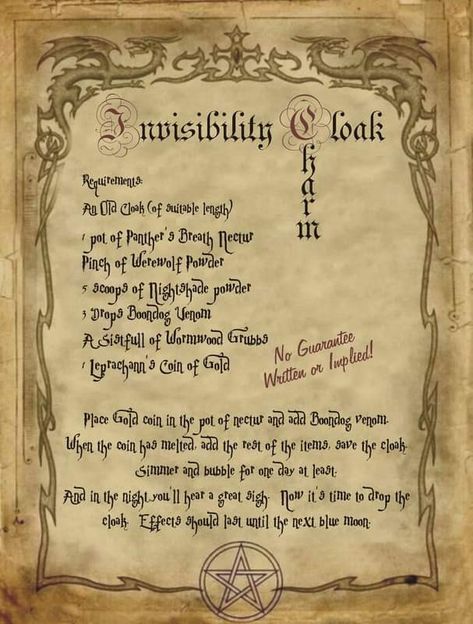 Invisibility Cloak
Charm
Requirements:
An Old Cloak (of suitable length)
1 pot of Panther's Breath Nectur
Pinch of Werewolf Powder
5 scoops of Nightshade powder
3 Drops Boondog Venom
A Sistfull of Wormwood Grubbs
1 Leprachann's Coin of Gold
No Guarantee
Written or Implied!
Place Gold coin in the pot of nectur and add Boondog venom.
When the coin has melted, add the rest of the items, save the cloak.
Simmer and bubble for one day at least.
And in the night you'll hear a great sigh. Now it's time to drop the
cloak. Effects should last until the next blue moon.